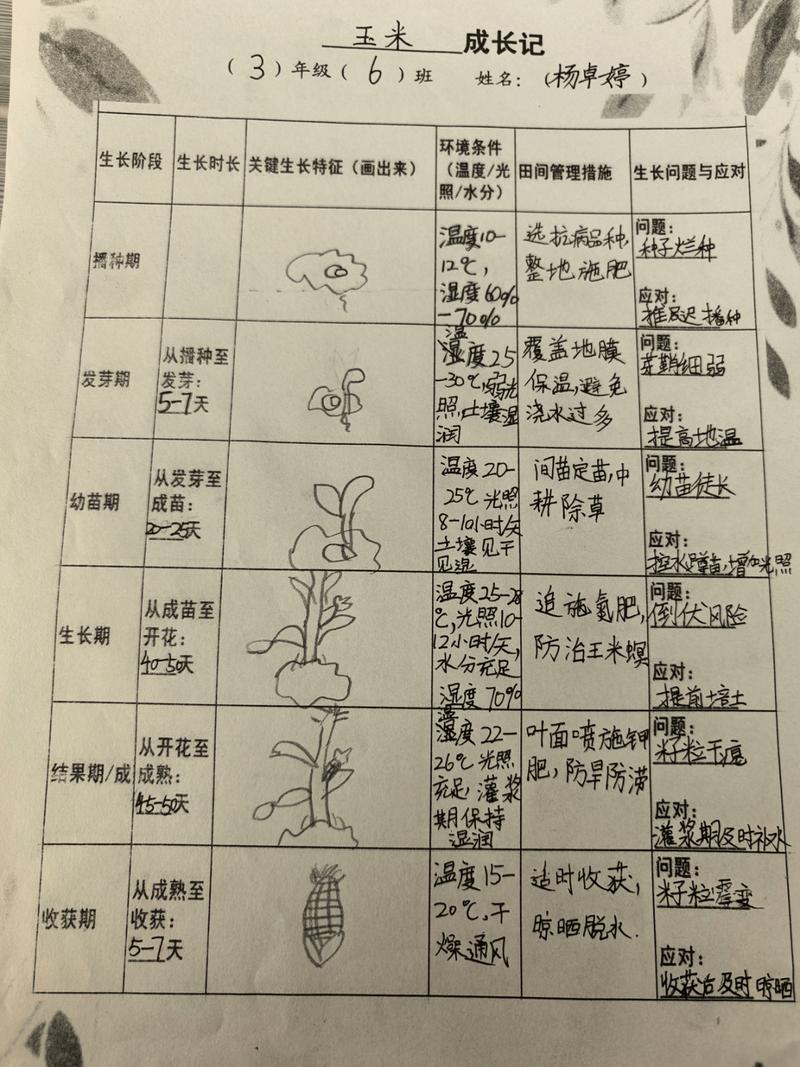 玉米 成长记
（3）年级（6）班 姓名：（杨卓婷）
生长阶段
生长时长
关键生长特征（画出来）
环境条件
（温度/光
照/水分）
田间管理措施
生长问题与应对
播种期
温度10-
12℃，
湿度60%
-70%
选抗病品种，
整地施肥
问题：
种子烂种
应对：
推迟播种
发芽期
从播种至
发芽：
5-7天
温
湿度25
-30℃，弱光
照，土壤湿
润
覆盖地膜
保温，避免
浇水过多
问题：
芽势细弱
应对：
提高地温
幼苗期
从发芽至
成苗：
20-25天
温度20-
25℃光照
8-10小时/天
土壤见干
见湿
间苗定苗，中
耕除草
问题：
幼苗徒长
应对：
控水蹲苗，增加光照
生长期
从成苗至
开花：
40-50天
温度25-28
℃，光照10-
12小时/天，
水分充足
湿度70%
追施氮肥，
防治玉米螟
问题：
倒伏风险
应对：
提前培土
结果期/成
从开花至
成熟：
45-50天
温
湿度22-
26℃光照
充足，灌浆
期保持
湿润
叶面喷施钾
肥，防旱防涝
问题：
籽粒干瘪
应对：
灌浆期及时补水
收获期
从成熟至
收获：
5-7天
温度15-
20℃，干
燥通风
适时收获，
晾晒脱水.
问题：
籽粒霉变
应对：
收获后及时晾晒